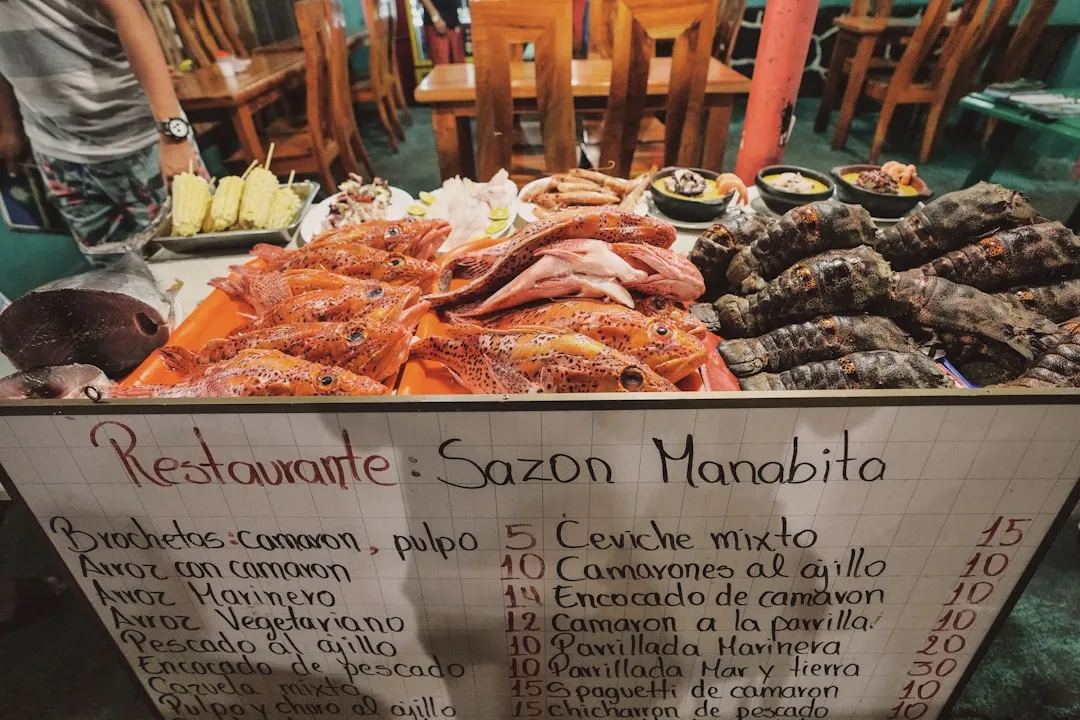 Restaurante: Sazon Manabita
Brochetas: camaron, pulpo 5
Arroz con camaron 10
Arroz Marinero 14
Arroz Vegetariano 12
Pescado al ajillo 10
Encocado de pescado 10
Cazuela mixta 15
Pulpo y churo al ajillo 15
Ceviche mixto 15
Camarones al ajillo 10
Encocado de camaron 10
Camaron a la parrilla. 10
Parrillada Marinera 20
Parrillada Mar y tierra 30
Spaguetti de camaron 10
chicharron de pescado 10